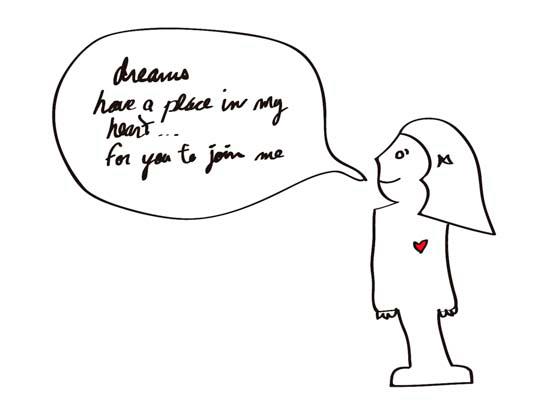 dreams
have a place in my
heart...
for you to join me